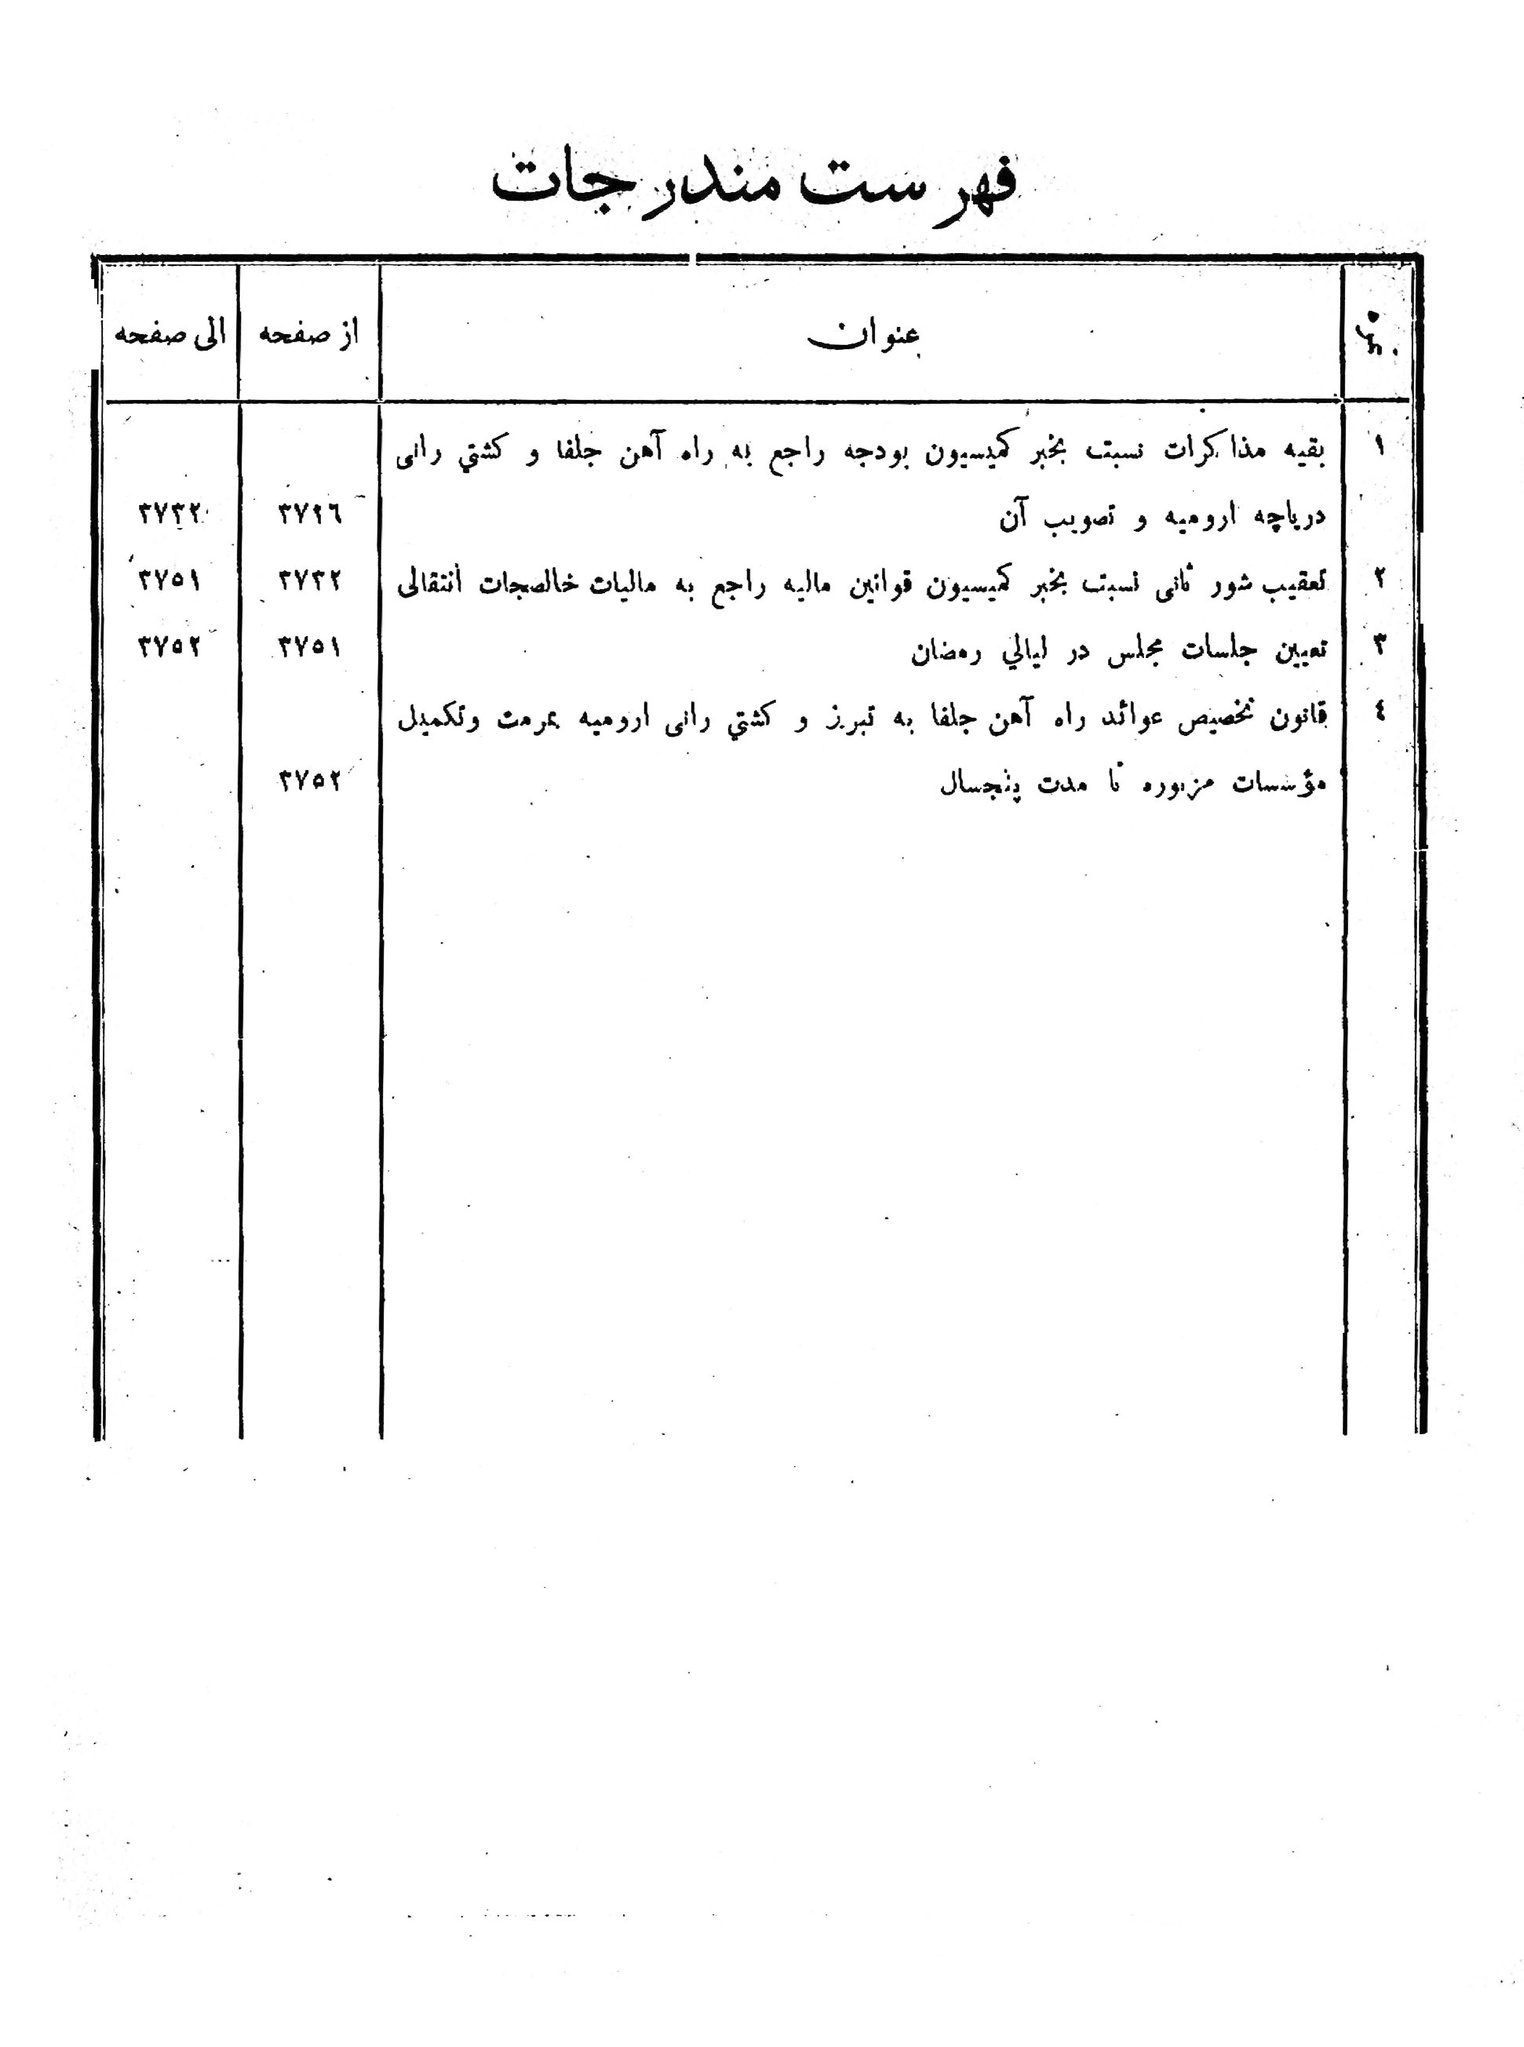 فهرست مندرجات
نمره عنوان از صفحه الی صفحه
١ بقیه مذاکرات نسبت بخبر کمیسیون بودجه راجع به راه آهن جلفا و کشتي رانی
دریاچه ارومیه و تصویب آن ٣٧٢٦ ٣٧٣٢
٢ تعقیب شور ثانی نسبت بخبر کمیسیون قوانین مالیه راجع به مالیات خالصجات انتقالی ٣٧٣٢ ٣٧٥١
٣ تعیین جلسات مجلس در لیالي رمضان ٣٧٥١ ٣٧٥٢
٤ قانون تخصیص عوائد راه آهن جلفا به تبریز و کشتي رانی ارومیه بمرمت وتکمیل
مؤسسات مزبوره تا مدت پنجسال ٣٧٥٢